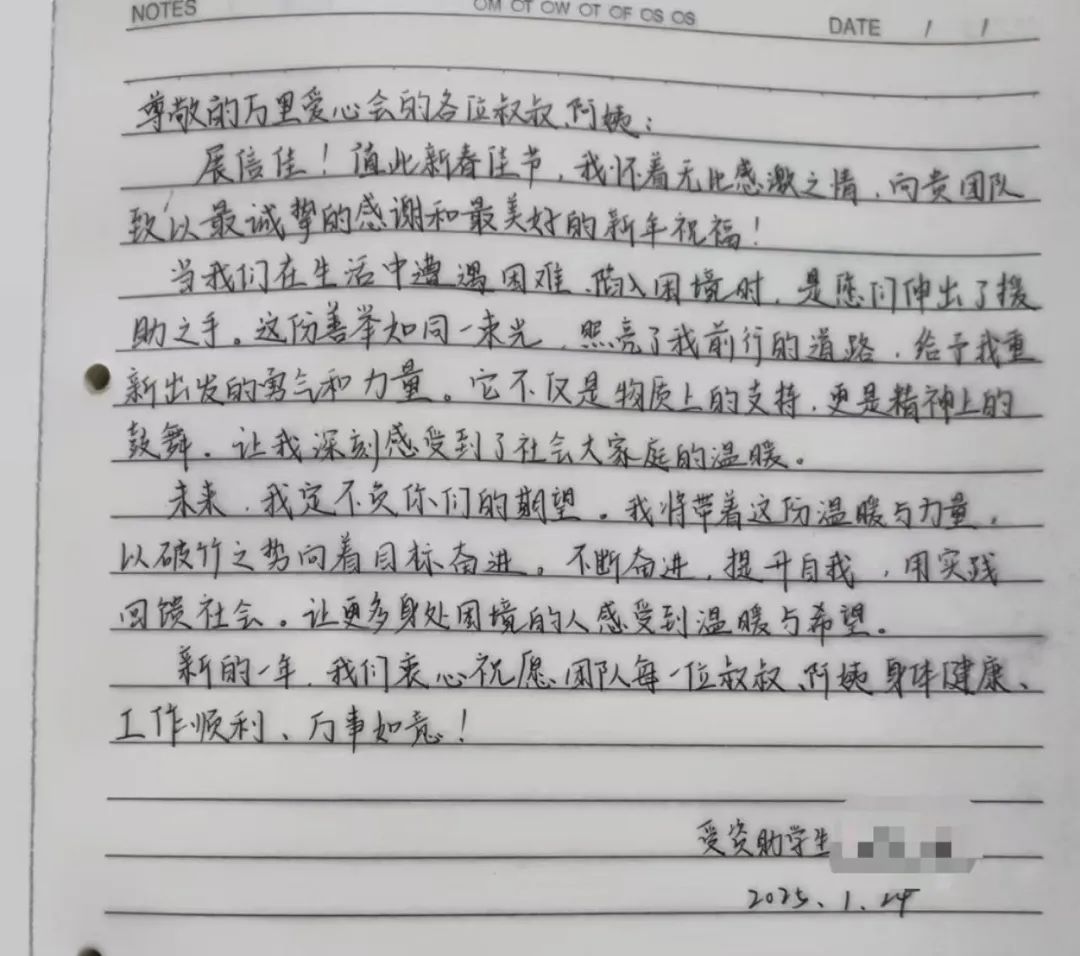 NOTES
OM OT OW OT OF OS OS
DATE / /
尊敬的万里爱心会的各位叔叔、阿姨：
展信佳！值此新春佳节，我怀着无比感激之情，向贵团队
致以最诚挚的感谢和最美好的新年祝福！
当我们在生活中遭遇困难、陷入困境时，是您们伸出了援
助之手。这份善举如同一束光，照亮了我前行的道路，给予我重
新出发的勇气和力量。它不仅是物质上的支持，更是精神上的
鼓舞，让我深刻感受到了社会大家庭的温暖。
未来，我定不负你们的期望。我将带着这份温暖与力量，
以破竹之势向着目标奋进。不断奋进，提升自我，用实践
回馈社会。让更多身处困境的人感受到温暖与希望。
新的一年，我们衷心祝愿团队每一位叔叔、阿姨身体健康、
工作顺利、万事如意！
受资助学生
2025.1.24